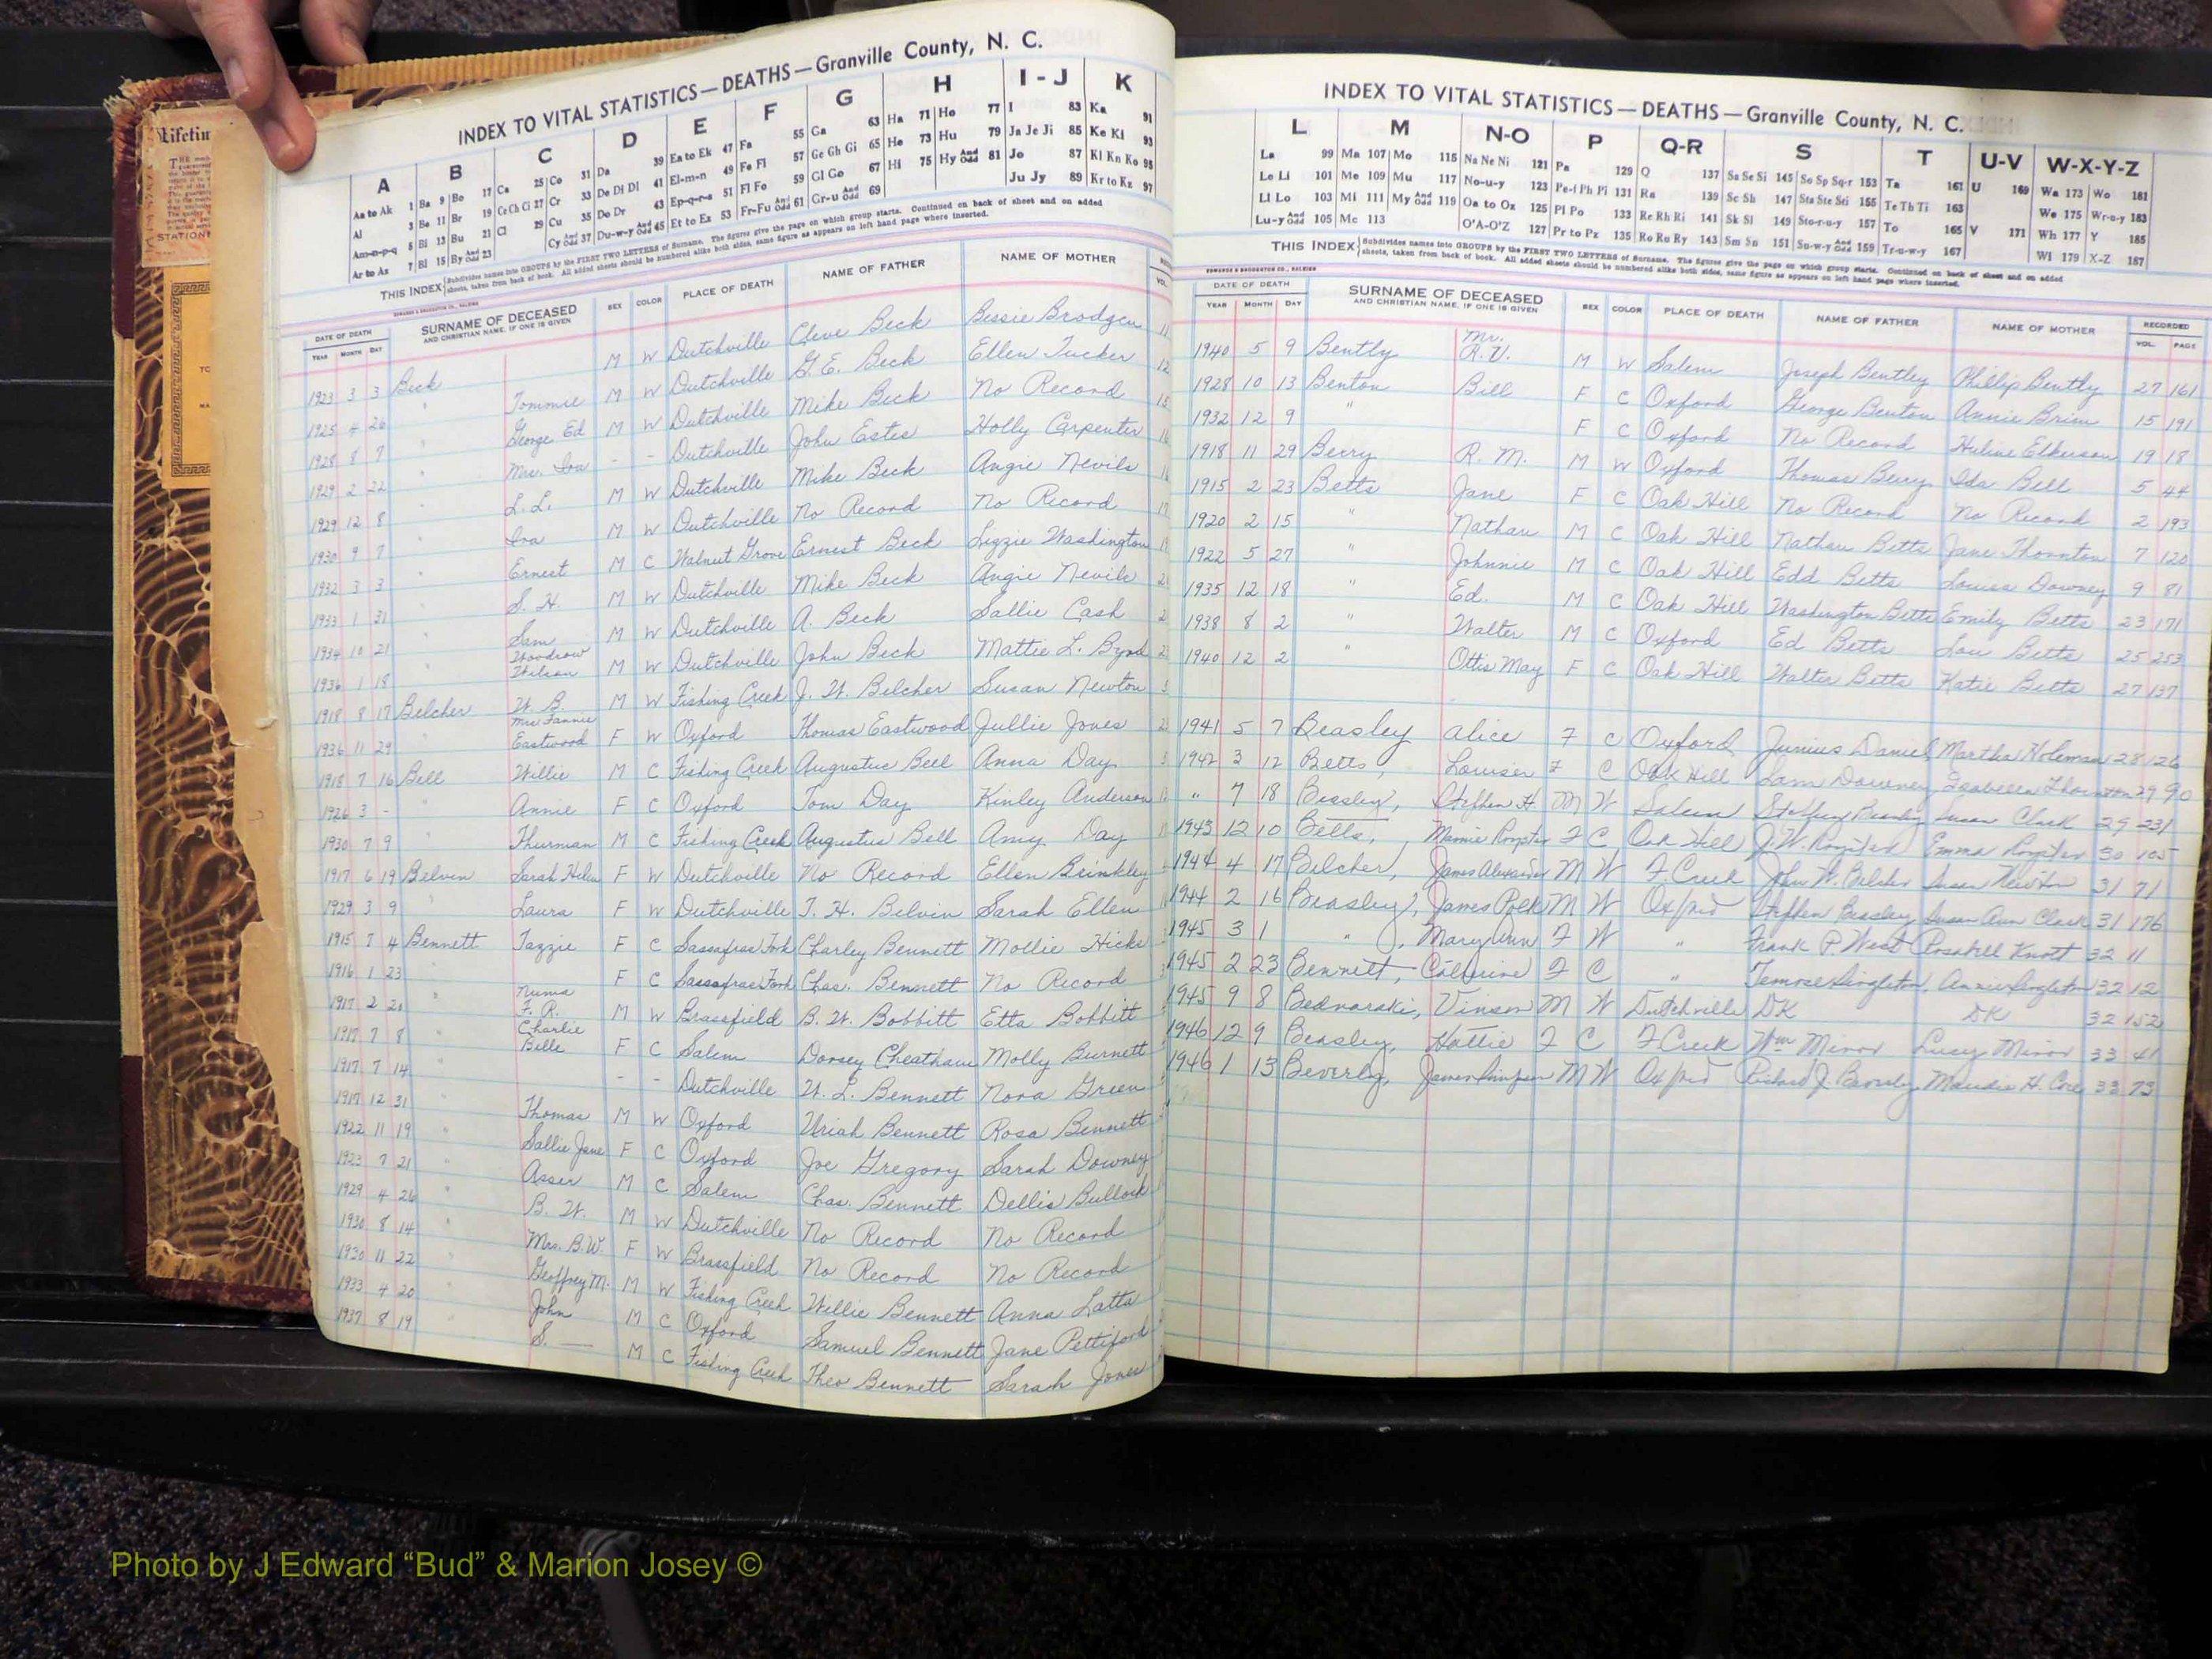 INDEX TO VITAL STATISTICS—DEATHS—Granville County, N. C.
A B C D E F G H I-J K
Aa to Ak 1 Ba 9 Bo 17 Ca 25 Co 31 Da 39 Ea to Ek 47 Fa 55 Ga 63 Ha 71 Ho 77 I 83 Ka 91
Al Be 11 Br 19 Ce Ch Ci 27 Cr 33 De Di Dl 41 El-m-n 49 Fe Fi 57 Ge Gh Gi 65 He 73 Hu 79 Ja Je Ji 85 Ke Ki 93
Am-n-p-q 5 Bi 13 Bu 21 Cl 29 Cu 35 Do Dr 43 Ep-q-r-s 51 Fl Fo 59 Gl Go 67 Hi 75 Hy And Odd 81 Jo 87 Kl Kn Ko 95
Ar to Az 7 Bl 15 By And Odd 23 Cy And Odd 37 Du-w-y And Odd 45 Et to Ez 53 Fr-Fu And Odd 61 Gr-u And Odd 69 Ju Jy 89 Kr to Kz 97
THIS INDEX Subdivides names into GROUPS by the FIRST TWO LETTERS of Surname. The figures give the page on which group starts. Continued on back of sheet and on added
sheets, taken from back of book. All added sheets should be numbered alike both sides, same figure as appears on left hand page where inserted.
DATE OF DEATH SURNAME OF DECEASED SEX COLOR PLACE OF DEATH NAME OF FATHER NAME OF MOTHER
YEAR MONTH DAY AND CHRISTIAN NAME, IF ONE IS GIVEN VOL.
1923 3 3 Beck M W Dutchville Cleve Beck Bessie Brodgen
1925 4 26 " Tommie M W Dutchville G. E. Beck Ellen Tucker
1928 8 7 " George Ed M W Dutchville Mike Beck No Record
1929 2 22 " Mrs. Iva - - Dutchville John Estes Holly Carpenter
1929 12 8 " L. L. M W Dutchville Mike Beck Angie Nevils
1930 9 7 " Iva M W Dutchville No Record No Record
1932 3 3 " Ernest M C Walnut Grove Ernest Beck Lizzie Washington
1933 1 31 " S. H. M W Dutchville Mike Beck Angie Nevils
1934 10 21 " Sam M W Dutchville A. Beck Sallie Cash
1936 1 18 " Woodrow Wilson M W Dutchville John Beck Mattie L. Byrd
1918 8 17 Belcher W. B. M W Fishing Creek J. W. Belcher Susan Newton
1936 11 29 " Mrs Fannie Eastwood F W Oxford Thomas Eastwood Jullie Jones
1918 7 16 Bell Willie M C Fishing Creek Augustus Bell Anna Day
1926 3 - " Annie F C Oxford Tom Day Kinley Anderson
1930 7 9 " Thurman M C Fishing Creek Augustus Bell Amy Day
1917 6 19 Belvin Sarah Helen F W Dutchville No Record Ellen Brinkley
1929 3 9 " Laura F W Dutchville T. H. Belvin Sarah Ellen
1915 7 4 Bennett Tazzie F C Sassafras Fork Charley Bennett Mollie Hicks
1916 1 23 " F C Sassafras Fork Chas. Bennett No Record
1917 2 21 " Numa F. R. M W Brassfield B. W. Bobbitt Etta Bobbitt
1917 7 8 " Charlie Belle F C Salem Dorsey Cheatham Molly Burnett
1917 7 14 - - Dutchville W. L. Bennett Nora Green
1917 12 31 " Thomas M W Oxford Uriah Bennett Rosa Bennett
1922 11 19 " Sallie Jane F C Oxford Joe Gregory Sarah Downey
1923 7 21 " Asser M C Salem Chas. Bennett Dellis Bullock
1929 4 26 " B. W. M W Dutchville No Record No Record
1930 8 14 " Mrs. B.W. F W Brassfield No Record No Record
1930 11 22 " Geoffrey M. M W Fishing Creek Willie Bennett Anna Latta
1933 4 20 " John M C Oxford Samuel Bennett Jane Pettiford
1937 8 19 " S. — M C Fishing Creek Theo Bennett Sarah Jones
INDEX TO VITAL STATISTICS—DEATHS—Granville County, N. C.
L M N-O P Q-R S T U-V W-X-Y-Z
La 99 Ma 107 Mo 115 Na Ne Ni 121 Pa 129 Q 137 Sa Se Si 145 So Sp Sq-r 153 Ta 161 U 169 Wa 173 Wo 181
Le Li 101 Me 109 Mu 117 No-u-y 123 Pe-f Ph Pi 131 Ra 139 Sc Sh 147 Sta Ste Sti 155 Te Th Ti 163 We 175 Wr-u-y 183
Ll Lo 103 Mi 111 My And Odd 119 Oa to Oz 125 Pl Po 133 Re Rh Ri 141 Sk Sl 149 Sto-r-u-y 157 To 165 V 171 Wh 177 Y 185
Lu-y And Odd 105 Mc 113 O'A-O'Z 127 Pr to Pz 135 Ro Ru Ry 143 Sm Sn 151 Su-w-y And Odd 159 Tr-u-w-y 167 Wi 179 X-Z 187
THIS INDEX Subdivides names into GROUPS by the FIRST TWO LETTERS of Surname. The figures give the page on which group starts. Continued on back of sheet and on added
sheets, taken from back of book. All added sheets should be numbered alike both sides, same figure as appears on left hand page where inserted.
DATE OF DEATH SURNAME OF DECEASED SEX COLOR PLACE OF DEATH NAME OF FATHER NAME OF MOTHER RECORDED
YEAR MONTH DAY AND CHRISTIAN NAME, IF ONE IS GIVEN VOL. PAGE
1940 5 9 Bently Mr. R. V. M W Salem Joseph Bentley Phillip Bently 27 161
1928 10 13 Benton Bill F C Oxford George Benton Annie Brim 15 191
1932 12 9 " F C Oxford No Record Huline Elkerson 19 18
1918 11 29 Berry R. M. M W Oxford Thomas Berry Ida Bell 5 44
1915 2 23 Betts Jane F C Oak Hill No Record No Record 2 193
1920 2 15 " Nathan M C Oak Hill Nathan Betts Jane Thornton 7 120
1922 5 27 " Johnnie M C Oak Hill Edd Betts Louisa Downey 9 81
1935 12 18 " Ed. M C Oak Hill Washington Betts Emily Betts 23 171
1938 8 2 " Walter M C Oxford Ed Betts Lou Betts 25 253
1940 12 2 " Ottis May F C Oak Hill Walter Betts Katie Betts 27 137
1941 5 7 Beasley Alice F C Oxford Junius Daniel Martha Holeman 28 126
1942 3 12 Betts, Louisa F C Oak Hill Sam Downey Isabella Thornton 29 90
" 7 18 Beasley, Stephen H. M W Salem Beasley Susan Clark 29 231
1943 12 10 Betts, Mamie Royster F C Oak Hill J. W. Royster Emma Royster 30 105
1944 4 17 Belcher, James Alexander M W F Creek John W. Belcher Susan Newton 31 71
1944 2 16 Beasley, James Polk M W Oxford Stephen Beasley Susan Ann Clark 31 176
1945 3 1 " , Mary Ann F W " Frank P West Rosabell Knott 32 11
1945 2 23 Bennett, Catherine F C " Singleton, Annie Singleton 32 12
1945 9 8 Bednarski, Vinson M W Dutchville DK DK 32 152
1946 12 9 Beasley, Hattie F C F Creek Wm Minor Lucy Minor 33 41
1946 1 13 Beverly, James Simpson M W Oxford Richard J. Beverly Maudie H. Coe 33 73
Photo by J Edward “Bud” & Marion Josey ©